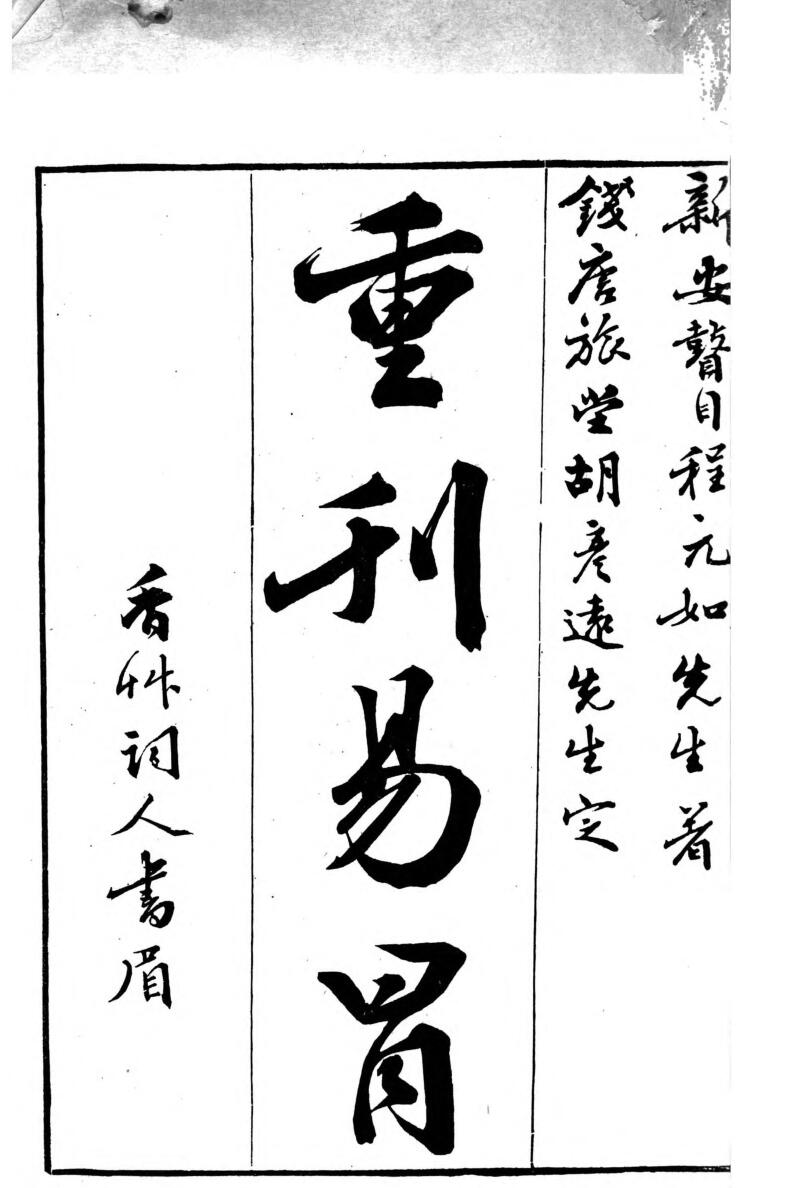 新安瞽目程元如先生著
錢唐旅堂胡彥遠先生定
重刊易冒
香艸詞人書眉